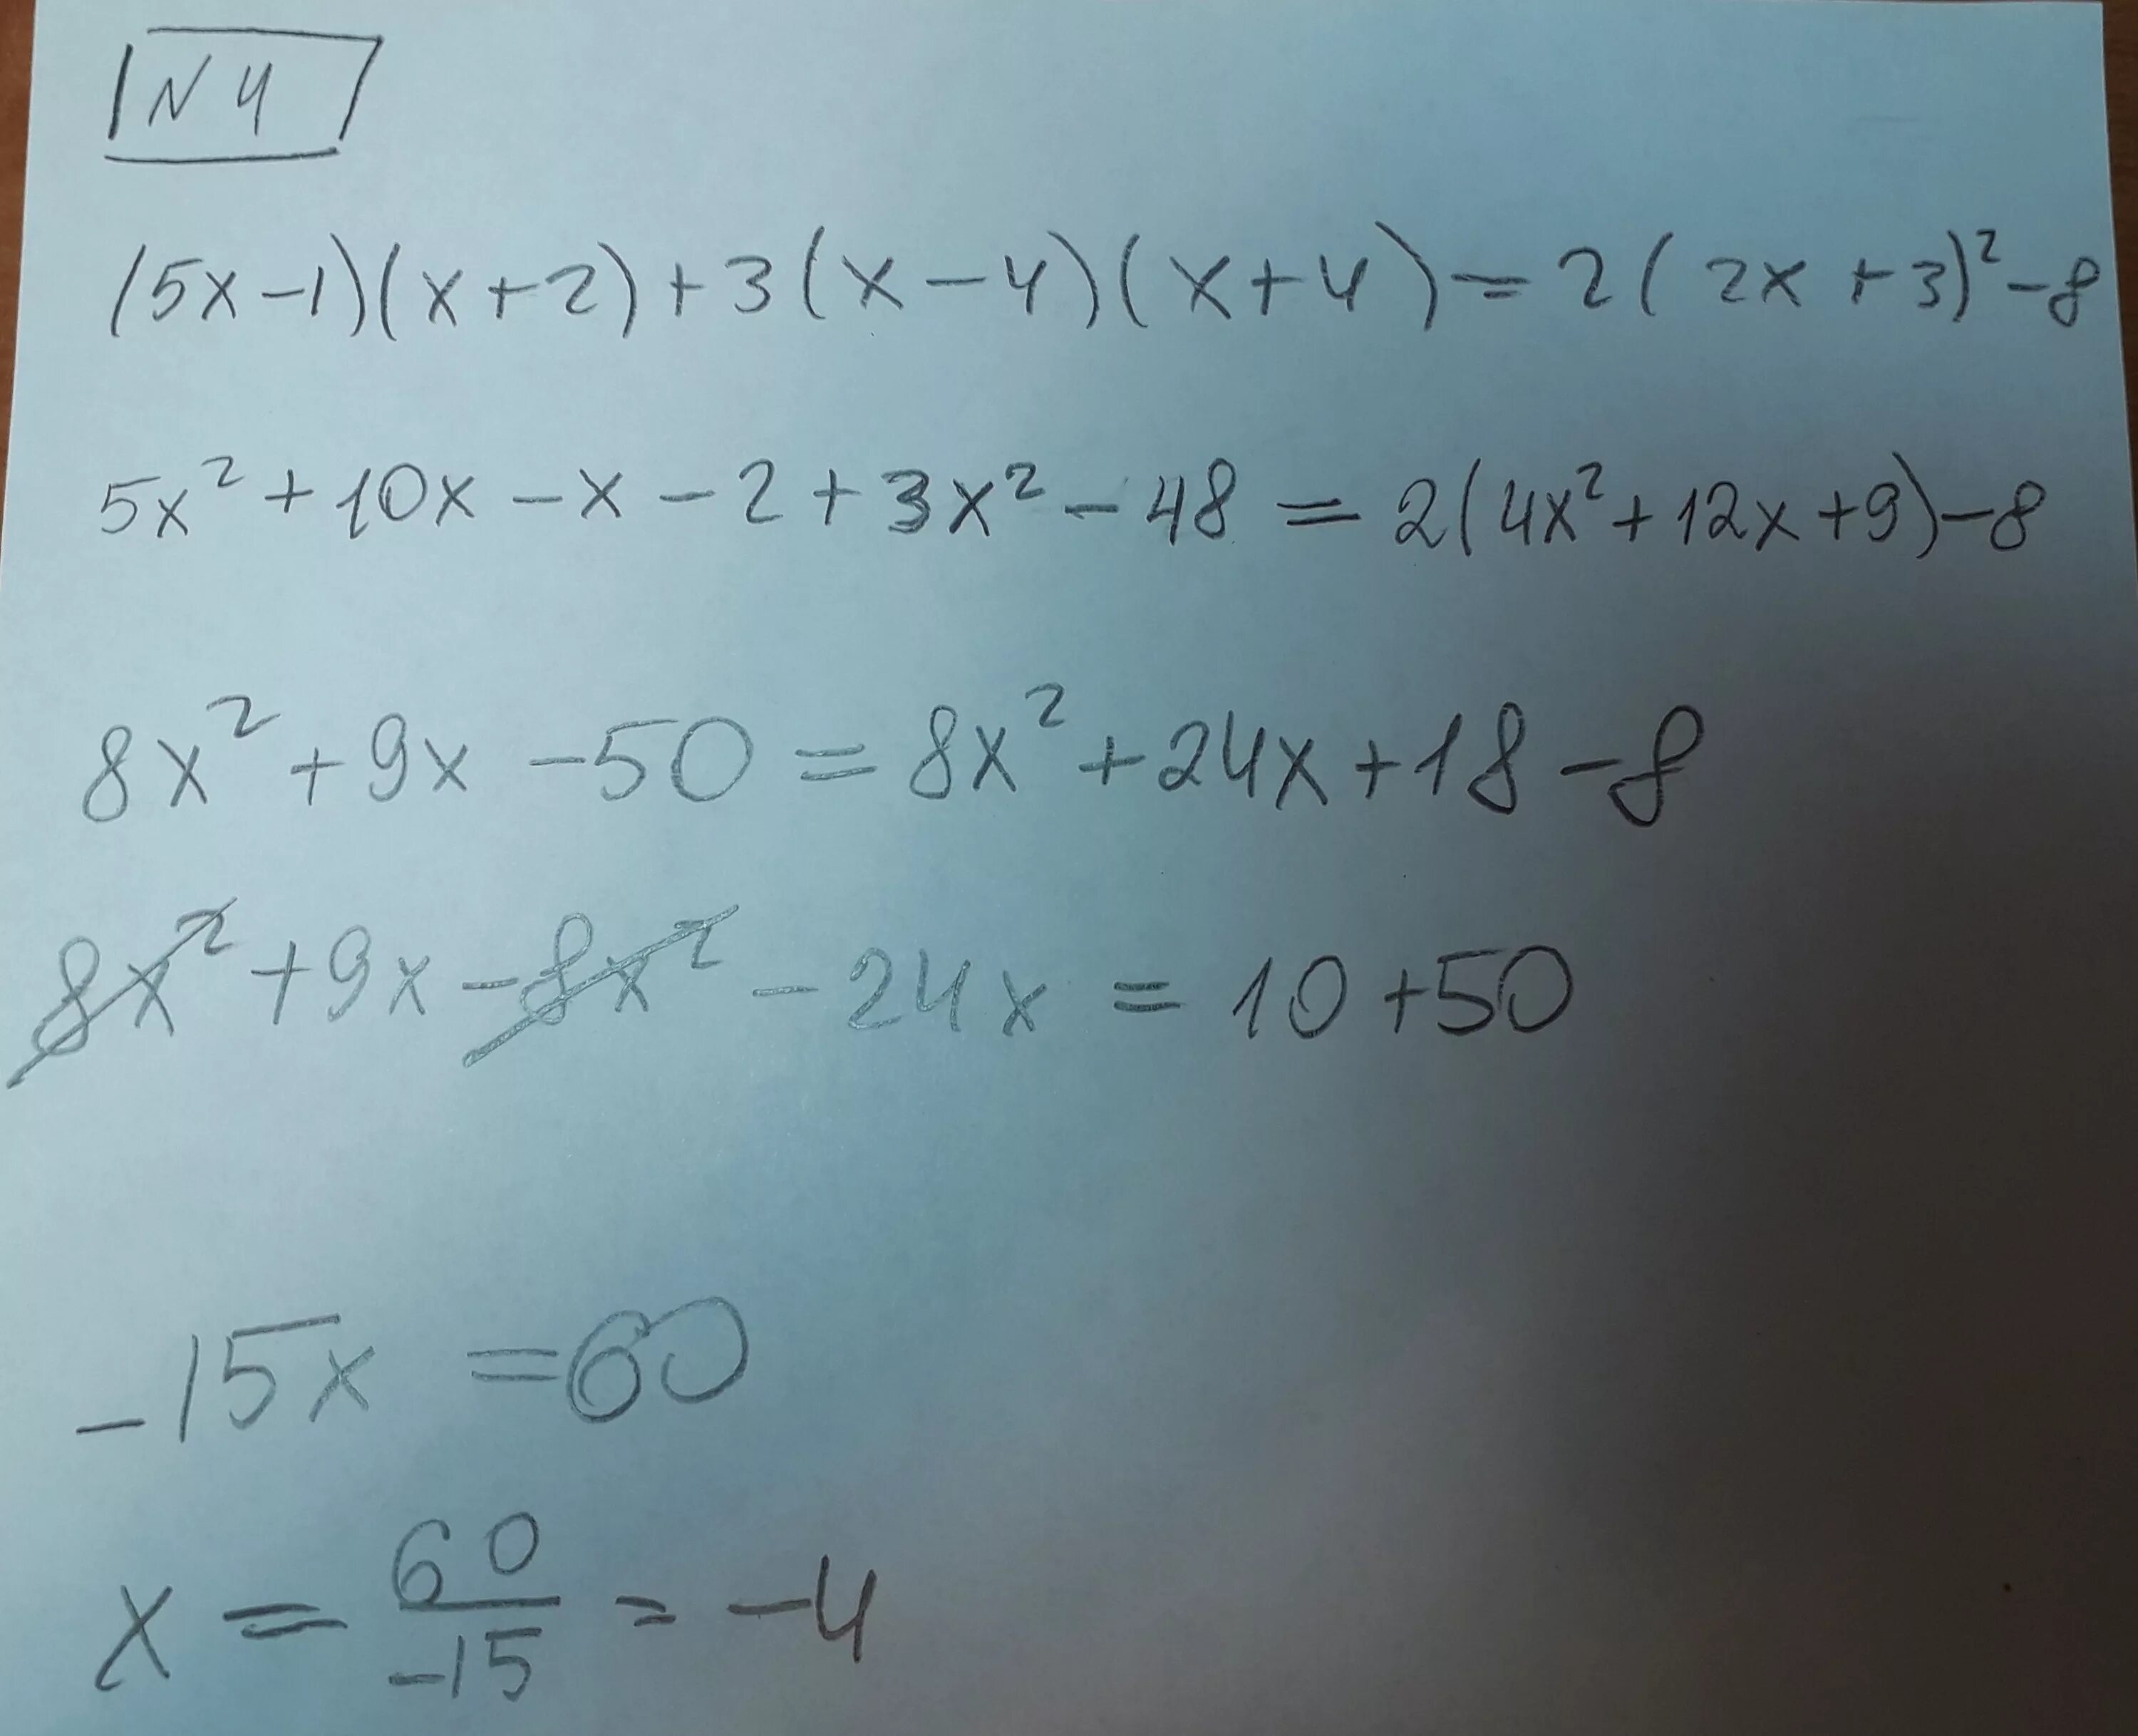 N 4
(5x-1)(x+2)+3(x-4)(x+4)=2(2x+3)²-8
5x²+10x-x-2+3x²-48=2(4x²+12x+9)-8
8x²+9x-50=8x²+24x+18-8
8x²+9x-8x²-24x=10+50
-15x=60
x=60/-15=-4